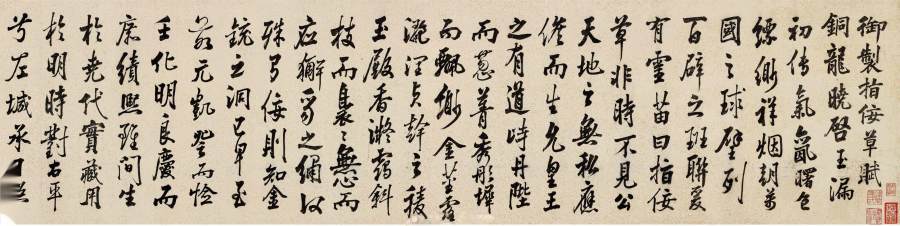 御製指佞草賦
銅龍曉啓玉漏
初傳氣氤曙色
縹緲祥烟朝萬
國之球璧列
百辟之班聯爰
有靈苗曰指佞
草非時不見公
天地之無私應
候而生允皇王
之有道時丹陛
而蔥菁秀彤墀
而飄緲金莖露
浥潤貞幹之
玉殿香凝露斜
枝而裊裊無心而
應獬豸之繡
殊身佞則知金
銃之洞已早
茲元凱登而
壬化明良慶而
庶績熙雖間生
於堯代實藏用
於明時對右平
左墄承